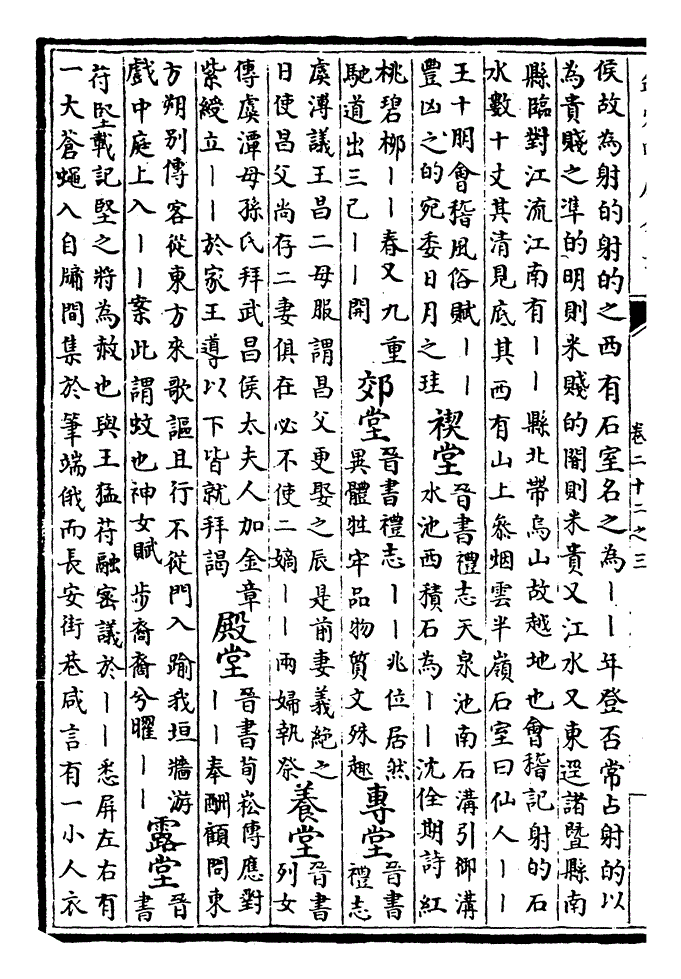 卷二十二之三
侯故為射的射的之西有石室名之為丨丨年登否常占射的以
為貴賤之準的明則米賤的闇則米貴又江水又東逕諸暨縣南
縣臨對江流江南有丨丨縣北帶烏山故越地也會稽記射的石
水數十丈其清見底其西有山上叅烟雲半嶺石室曰仙人丨丨
王十朋會稽風俗賦丨丨
豐凶之的宛委日月之珪
禊堂
晉書禮志天泉池南石溝引御溝
水池西積石為丨丨沈佺期詩紅
桃碧栁丨丨春又九重
馳道出三己丨丨開
郊堂
晉書禮志丨丨兆位居然
異體牲牢品物質文殊趣
專堂
晉書
禮志
虞溥議王昌二母服謂昌父更娶之辰是前妻義絕之
日使昌父尚存二妻俱在必不使二嫡丨丨兩婦執祭
養堂
晉書
列女
傳虞潭母孫氏拜武昌侯太夫人加金章
紫綬立丨丨於家王導以下皆就拜謁
殿堂
晉書荀崧傳應對
丨丨奉酬顧問東
方朔别傳客從東方來歌謳且行不從門入踰我垣牆游
戲中庭上入丨丨案此謂蚊也神女賦 步裔裔兮曜丨丨
露堂
晉
書
苻堅載記堅之將為赦也與王猛苻融密議於丨丨悉屏左右有
一大蒼蠅入自牖間集於筆端俄而長安街巷咸言有一小人衣